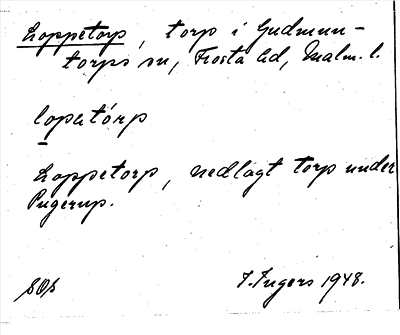 Loppetorp, torp i Gudmun-
torps sn, Frosta hd, Malm. l.
lopatórp
Loppetorp, nedlagt torp under
Pugerup.
SOs
F. Ingers 1948.